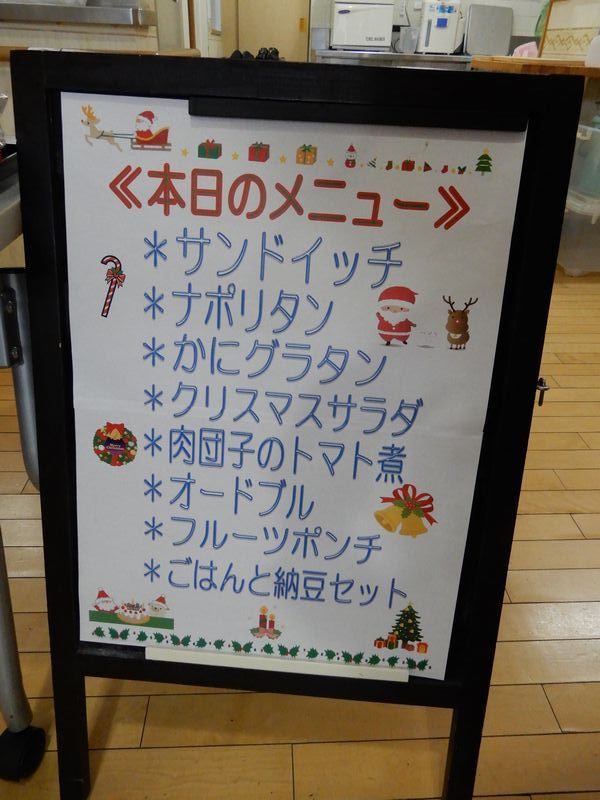 ≪本日のメニュー≫
＊サンドイッチ
＊ナポリタン
＊かにグラタン
＊クリスマスサラダ
＊肉団子のトマト煮
＊オードブル
＊フルーツポンチ
＊ごはんと納豆セット